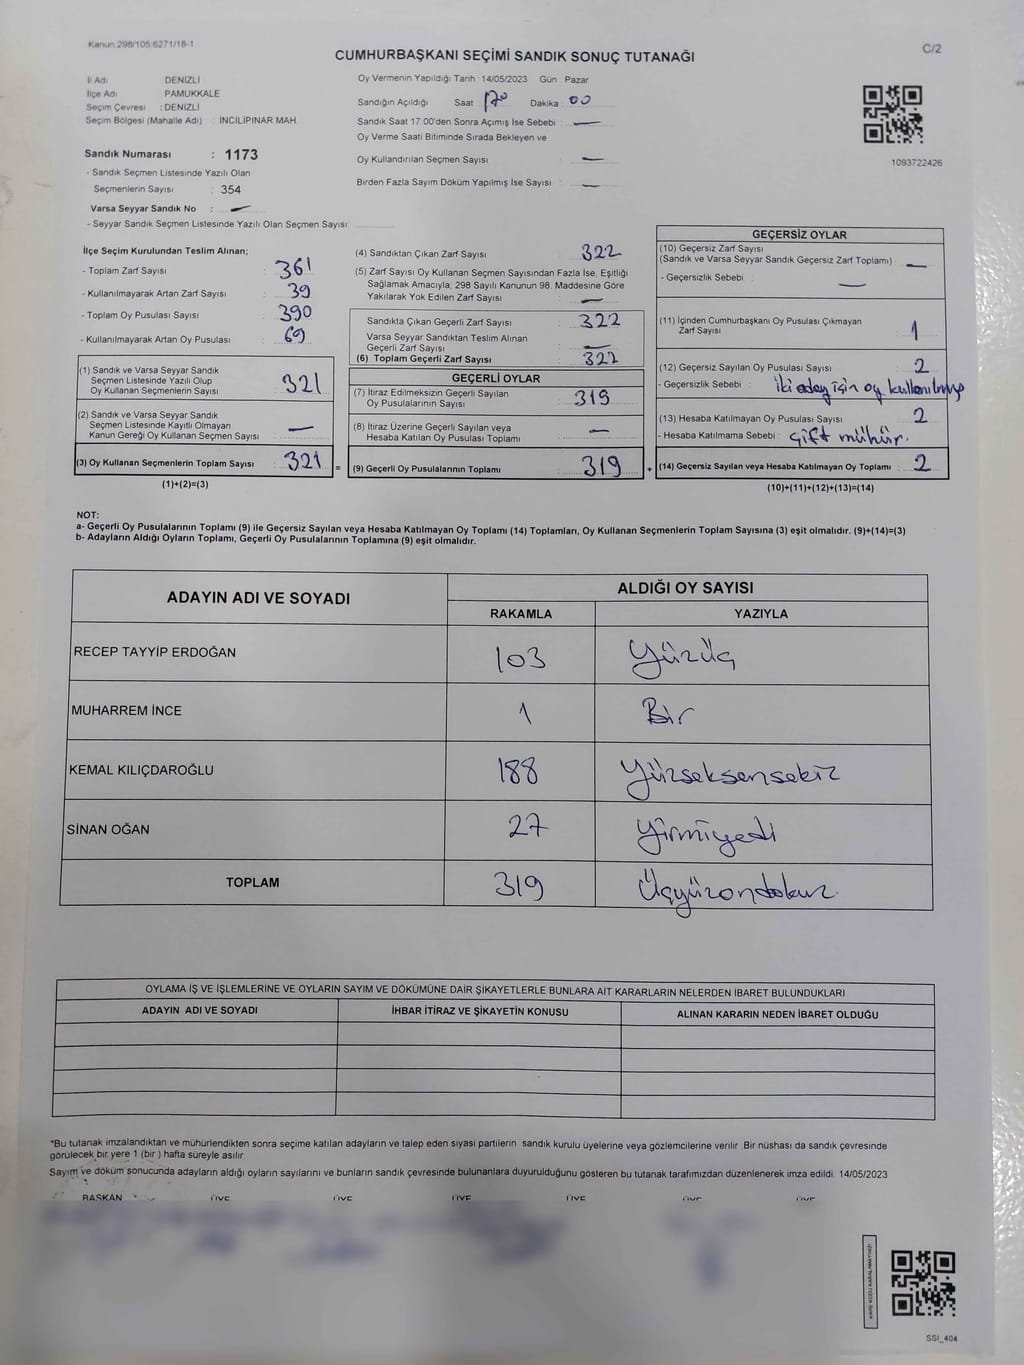 Kanun.298/105:6271/18-1
C/2
CUMHURBAŞKANI SEÇİMİ SANDIK SONUÇ TUTANAĞI
İl Adı DENİZLİ
İlçe Adı PAMUKKALE
Seçim Çevresi : DENİZLİ
Seçim Bölgesi (Mahalle Adı) : İNCİLİPINAR MAH
Sandık Numarası : 1173
- Sandık Seçmen Listesinde Yazılı Olan
Seçmenlerin Sayısı : 354
Varsa Seyyar Sandık No : —
- Seyyar Sandık Seçmen Listesinde Yazılı Olan Seçmen Sayısı
Oy Vermenin Yapıldığı Tarih : 14/05/2023 Gün : Pazar
Sandığın Açıldığı Saat : 17 Dakika : 00
Sandık Saat 17:00'den Sonra Açımış İse Sebebi : —
Oy Verme Saati Bitiminde Sırada Bekleyen ve
Oy Kullandırılan Seçmen Sayısı —
Birden Fazla Sayım Döküm Yapılmış İse Sayısı : —
1093722426
İlçe Seçim Kurulundan Teslim Alınan;
- Toplam Zarf Sayısı : 361
- Kullanılmayarak Artan Zarf Sayısı : 39
- Toplam Oy Pusulası Sayısı : 390
- Kullanılmayarak Artan Oy Pusulası : 69
(1) Sandık ve Varsa Seyyar Sandık
Seçmen Listesinde Yazılı Olup
Oy Kullanan Seçmenlerin Sayısı 321
(2) Sandık ve Varsa Seyyar Sandık
Seçmen Listesinde Kayıtlı Olmayan
Kanun Gereği Oy Kullanan Seçmen Sayısı : —
(3) Oy Kullanan Seçmenlerin Toplam Sayısı : 321 =
(1)+(2)=(3)
(4) Sandıktan Çıkan Zarf Sayısı 322
(5) Zarf Sayısı Oy Kullanan Seçmen Sayısından Fazla İse, Eşitliği
Sağlamak Amacıyla, 298 Sayılı Kanunun 98. Maddesine Göre
Yakılarak Yok Edilen Zarf Sayısı : —
Sandıkta Çıkan Geçerli Zarf Sayısı : 322
Varsa Seyyar Sandıktan Teslim Alınan
Geçerli Zarf Sayısı —
(6) Toplam Geçerli Zarf Sayısı : 322
GEÇERLİ OYLAR
(7) İtiraz Edilmeksizin Geçerli Sayılan
Oy Pusulalarının Sayısı : 319
(8) İtiraz Üzerine Geçerli Sayılan veya
Hesaba Katılan Oy Pusulası Toplamı : —
(9) Geçerli Oy Pusulalarının Toplamı : 319 +
GEÇERSİZ OYLAR
(10) Geçersiz Zarf Sayısı
(Sandık ve Varsa Seyyar Sandık Geçersiz Zarf Toplamı) : —
- Geçersizlik Sebebi : —
(11) İçinden Cumhurbaşkanı Oy Pusulası Çıkmayan
Zarf Sayısı : 1
(12) Geçersiz Sayılan Oy Pusulası Sayısı : 2
- Geçersizlik Sebebi : İki aday için oy kullanılmış
(13) Hesaba Katılmayan Oy Pusulası Sayısı : 2
- Hesaba Katılmama Sebebi : Çift mühür.
(14) Geçersiz Sayılan veya Hesaba Katılmayan Oy Toplamı : 2
(10)+(11)+(12)+(13)=(14)
NOT:
a- Geçerli Oy Pusulalarının Toplamı (9) ile Geçersiz Sayılan veya Hesaba Katılmayan Oy Toplamı (14) Toplamları, Oy Kullanan Seçmenlerin Toplam Sayısına (3) eşit olmalıdır. (9)+(14)=(3)
b- Adayların Aldığı Oyların Toplamı, Geçerli Oy Pusulalarının Toplamına (9) eşit olmalıdır.
ADAYIN ADI VE SOYADI
ALDIĞI OY SAYISI
RAKAMLA YAZIYLA
RECEP TAYYİP ERDOĞAN 103 Yüzüç
MUHARREM İNCE 1 Bir
KEMAL KILIÇDAROĞLU 188 Yüzseksensekiz
SİNAN OĞAN 27 Yirmiyedi
TOPLAM 319 Üçyüzondokuz
OYLAMA İŞ VE İŞLEMLERİNE VE OYLARIN SAYIM VE DÖKÜMÜNE DAİR ŞİKAYETLERLE BUNLARA AİT KARARLARIN NELERDEN İBARET BULUNDUKLARI
ADAYIN ADI VE SOYADI İHBAR İTİRAZ VE ŞİKAYETİN KONUSU ALINAN KARARIN NEDEN İBARET OLDUĞU
*Bu tutanak imzalandıktan ve mühürlendikten sonra seçime katılan adayların ve talep eden siyasi partilerin sandık kurulu üyelerine veya gözlemcilerine verilir. Bir nüshası da sandık çevresinde
görülecek bir yere 1 (bir ) hafta süreyle asılır.
Sayım ve döküm sonucunda adayların aldığı oyların sayılarını ve bunların sandık çevresinde bulunanlara duyurulduğunu gösteren bu tutanak tarafımızdan düzenlenerek imza edildi. 14/05/2023
BAŞKAN ÜYE ÜYE ÜYE ÜYE ÜYE ÜYE
KARE KODU KARALAMAYINIZ!
SSI_404